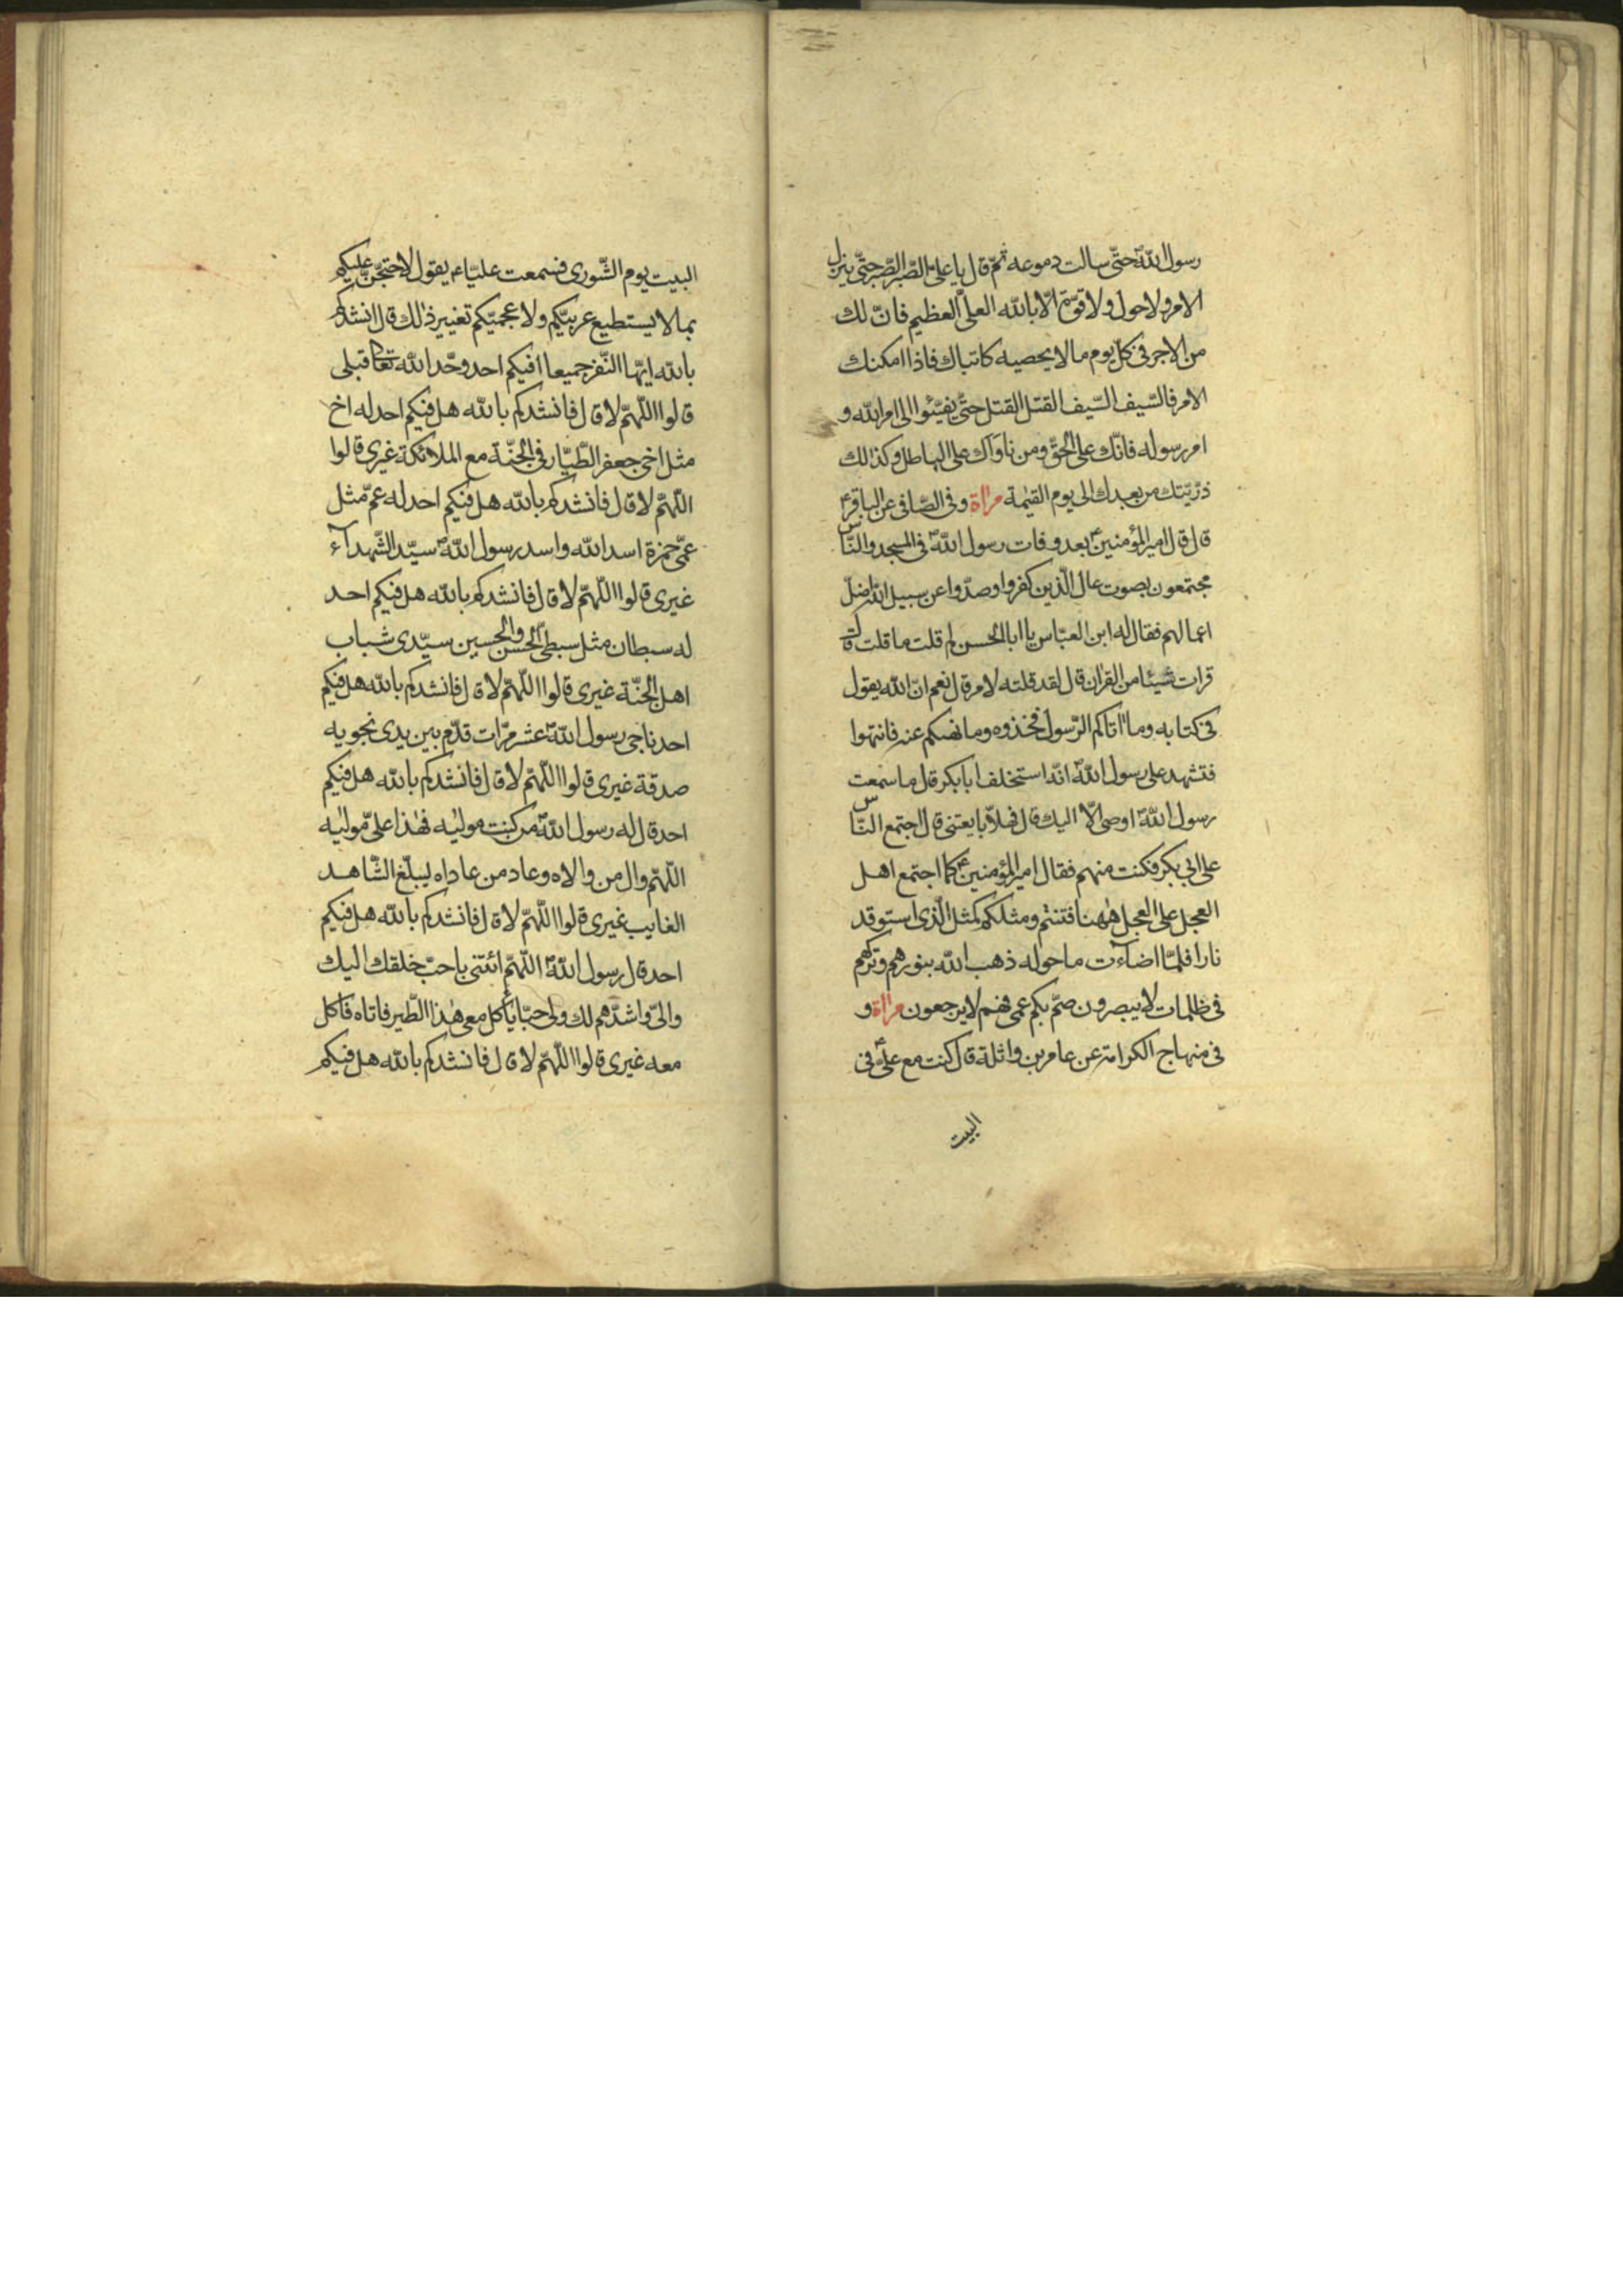 رسول اللّه ص حتّى سالت دموعه ثمّ قال يا على الصّبر الصّبر حتّى ينزل
الامر ولا حول ولا قوّة الّا باللّه العلىّ العظيم فانّ لك
من الاجر فى كلّ يوم ما لا يحصيه كاتباك فاذا امكنك
الامر فالسّيف السّيف القتل القتل حتّى يفيئوا الى امر اللّه و
امر رسوله فانّك على الحقّ ومن ناواك على الباطل وكذلك
ذرّيّتك من بعدك الى يوم القيٰمة مراة وفى الصّافى عن الباقر ع
قال قال امير المؤمنين ع بعد وفات رسول اللّه ص فى المسجد والنّاس
مجتمعون بصوت عال الّذين كفروا وصدّوا عن سبيل اللّه اضلّ
اعمالهم فقال له ابن العبّاس يا ابا الحسن لم قلت ما قلت قال
قرات شيئا من القران قال لقد قلته لامر قال نعم انّ اللّه يقول
فى كتابه وما اتاكم الرّسول فخذوه وما نهٰيكم عنه فانتهوا
فتشهد على رسول اللّه ص انّه استخلف ابا بكر قال ما سمعت
رسول اللّه ص اوصى الّا اليك قال فهلّا بايعتنى قال اجتمع النّاس
على ابى بكر فكنت منهم فقال امير المؤمنين ع كما اجتمع اهل
العجل على العجل هٰهنا فتنتم ومثلكم كمثل الّذى استوقد
نارا فلمّا اضاءت ما حوله ذهب اللّه بنورهم وتركهم
فى ظلمات لا يبصرون صمّ بكم عمى فهم لا يرجعون مراة و
فى منهاج الكرامة عن عامر بن واثلة قال كنت مع علىّ ع فى
البيت
البيت يوم الشّورى فسمعت عليّا ع يقول لاحتجّنّ عليكم
بما لا يستطيع عربيّكم ولا عجميّكم تغيير ذلك قال انشدكم
باللّه ايّها النّفر جميعا افيكم احد وحّد اللّه تعالى قبلى
قالوا اللّهمّ لا قال فانشدكم باللّه هل فيكم احد له اخ
مثل اخى جعفر الطّيّار فى الجنّة مع الملائكة غيرى قالوا
اللّهمّ لا قال فانشدكم باللّه هل فيكم احد له عمّ مثل
عمّى حمزة اسد اللّه واسد رسول اللّه ص سيّد الشّهداء
غيرى قالوا اللّهمّ لا قال فانشدكم باللّه هل فيكم احد
له سبطان مثل سبطىّ الحسن والحسين سيّدى شباب
اهل الجنّة غيرى قالوا اللّهمّ لا قال فانشدكم باللّه هل فيكم
احد ناجى رسول اللّه ص عشر مرّات قدّم بين يدى نجويه
صدقة غيرى قالوا اللّهمّ لا قال فانشدكم باللّه هل فيكم
احد قال له رسول اللّه ص من كنت موليٰه فهٰذا علىّ موليٰه
اللّهمّ وال من والاه وعاد من عاداه ليبلّغ الشّاهد
الغايب غيرى قالوا اللّهمّ لا قال فانشدكم باللّه هل فيكم
احد قال رسول اللّه ص اللّهمّ ائتنى باحبّ خلقك اليك
والىّ واشدّهم لك ولى حبّا يأكل معى هٰذا الطّير فاتاه فاكل
معه غيرى قالوا اللّهمّ لا قال فانشدكم باللّه هل فيكم